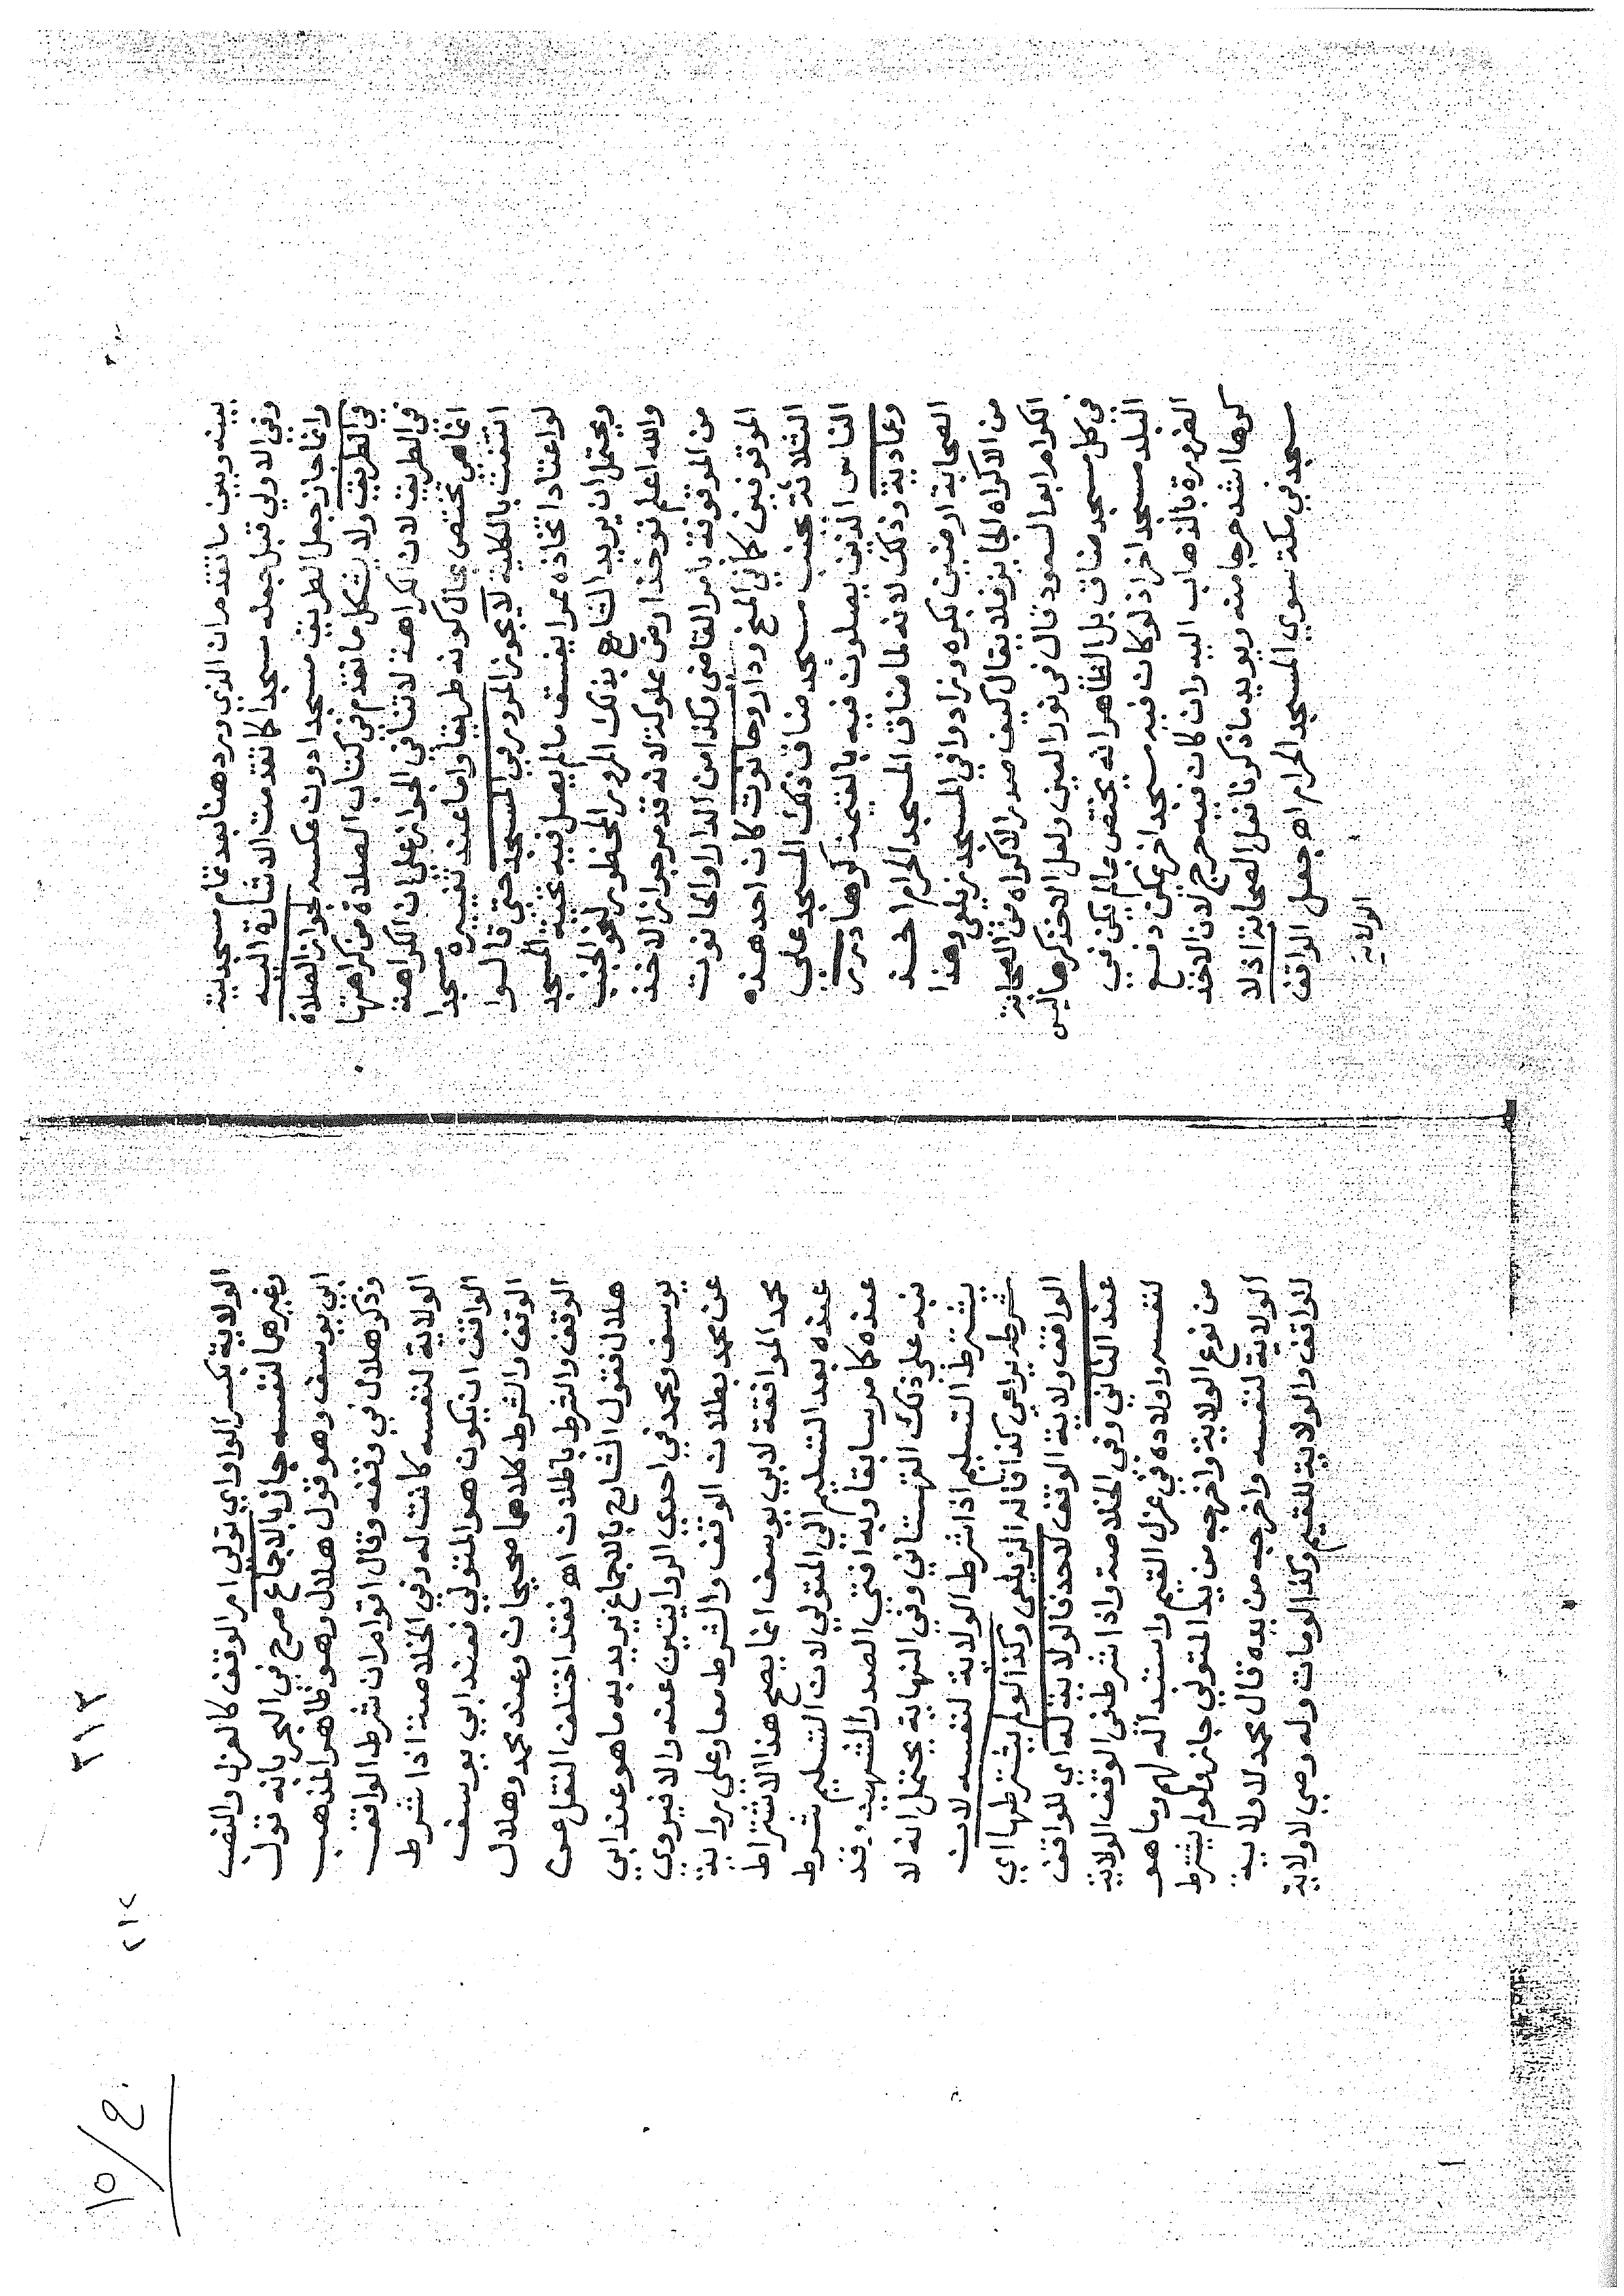 بينه وبين ما تقدم ان الذي ورد هنا بعد تمام مسجدية
وفي الاولي قبل جعله مسجدا كما تقدمت الاشارة اليه
وانما جاز جعل الطريق مسجدا دون عكسه لجواز الصلاة
في الطريق ولا يشكل ما تقدم في كتاب الصلاة من كراهتها
في الطريق لان الكراهة لا تنافي الجواز علي ان الكراهة
انما هي تختص بحال كونه طريقا واما عند تغييره مسجدا
انتفت بالكلية لا يجوز المرور في المسجد حتى قالوا
لو اعتاد اتخاذه ممرا يفسق ما لم يصل فيه تحية المسجد
ويحتمل ان يريد الشارع بذلك المرور المحظور لنحو الجنب
والله اعلم تؤخذ ارض مملوكة لانه قد مر جواز الاخذ
من الموقوفة بامر القاضي وكذا من الدار والحانوت
الموقوفين كما في المنح ودار وحانوت كان احد هذه
الثلاثة بجنب مسجد ضاق ذلك المسجد على
الناس الذين يصلون فيه بالقيمة كرها درر
وعمادية وذلك لانه لما ضاق المسجد الحرام اخذ
الصحابة ارضين بكره وزادوا في المسجد زيلعي وهذا
من الاكراه الجايز فلا يقال كيف صدر الاكراه من الصحابة
الكرام ابو السعود قال في نور العين ولعل الاخذ كرها ليس
في كل مسجد ضاق بل الظاهر انه يختص بما لم يكن في
البلد مسجد اخر اذ لو كان فيه مسجد اخر يمكن دفع
الضرورة بالذهاب اليه وان كان فيه حرج لان الاخذ
كرها اشد حرجا منه ويويد ما ذكرنا فعل الصحابة اذ لا
مسجد في مكة سوي المسجد الحرام اه جعل الواقف
الولاية
٣١٣
٢١٢
الولاية بكسر الواو اي تولي امر الوقف كالعزل والنصب
وغيرهما لنفسه جاز بالاجماع صرح في البحر بانه قول
ابي يوسف وهو قول هلال وهو ظاهر المذهب
وذكر هلال في وقفه وقال اقوام ان شرط الواقف
الولاية لنفسه كانت له وفي الخلاصة اذا شرط
الواقف ان يكون هو المتولي فعند ابي يوسف
الوقف والشرط كلاهما صحيحان وعند محمد وهلال
الوقف والشرط باطلان اه فقد اختلف النقل عن
هلال فقول الشارح بالاجماع يريد به ما هو عند ابي
يوسف ومحمد في احدي الروايتين عنه والا فيروي
عن محمد بطلان الوقف والشرط معا وعلي رواية
محمد الموافقة لابي يوسف انما يصح هذا الاشتراط
عنده بعد التسليم الي المتولي لان التسليم شرط
عنده كما مر سابقا وبه افتى الصدر الشهيد وقد
نبه على ذلك القهستاني وفي النهاية يحتمل انه لا
يشترط التسليم اذا شرط الولاية لنفسه لان
شرطه يراعي كذا قاله الزيلعي وكذا لو لم يشترطها اي
الواقف ولاية الوقف لاحد فالولاية له اي للواقف
عند الثاني وفي الخلاصة واذا شرط في الوقف الولاية
لنفسه واولاده في عزل القيم واستبداله لهم وما هو
من نوع الولاية واخرجه من يد المتولي جاز ولو لم يشترط
الولاية لنفسه واخرجه من يده قال محمد لا ولاية
للواقف والولاية للقيم وكذا لو مات وله وصي لا ولاية
١٥/ع